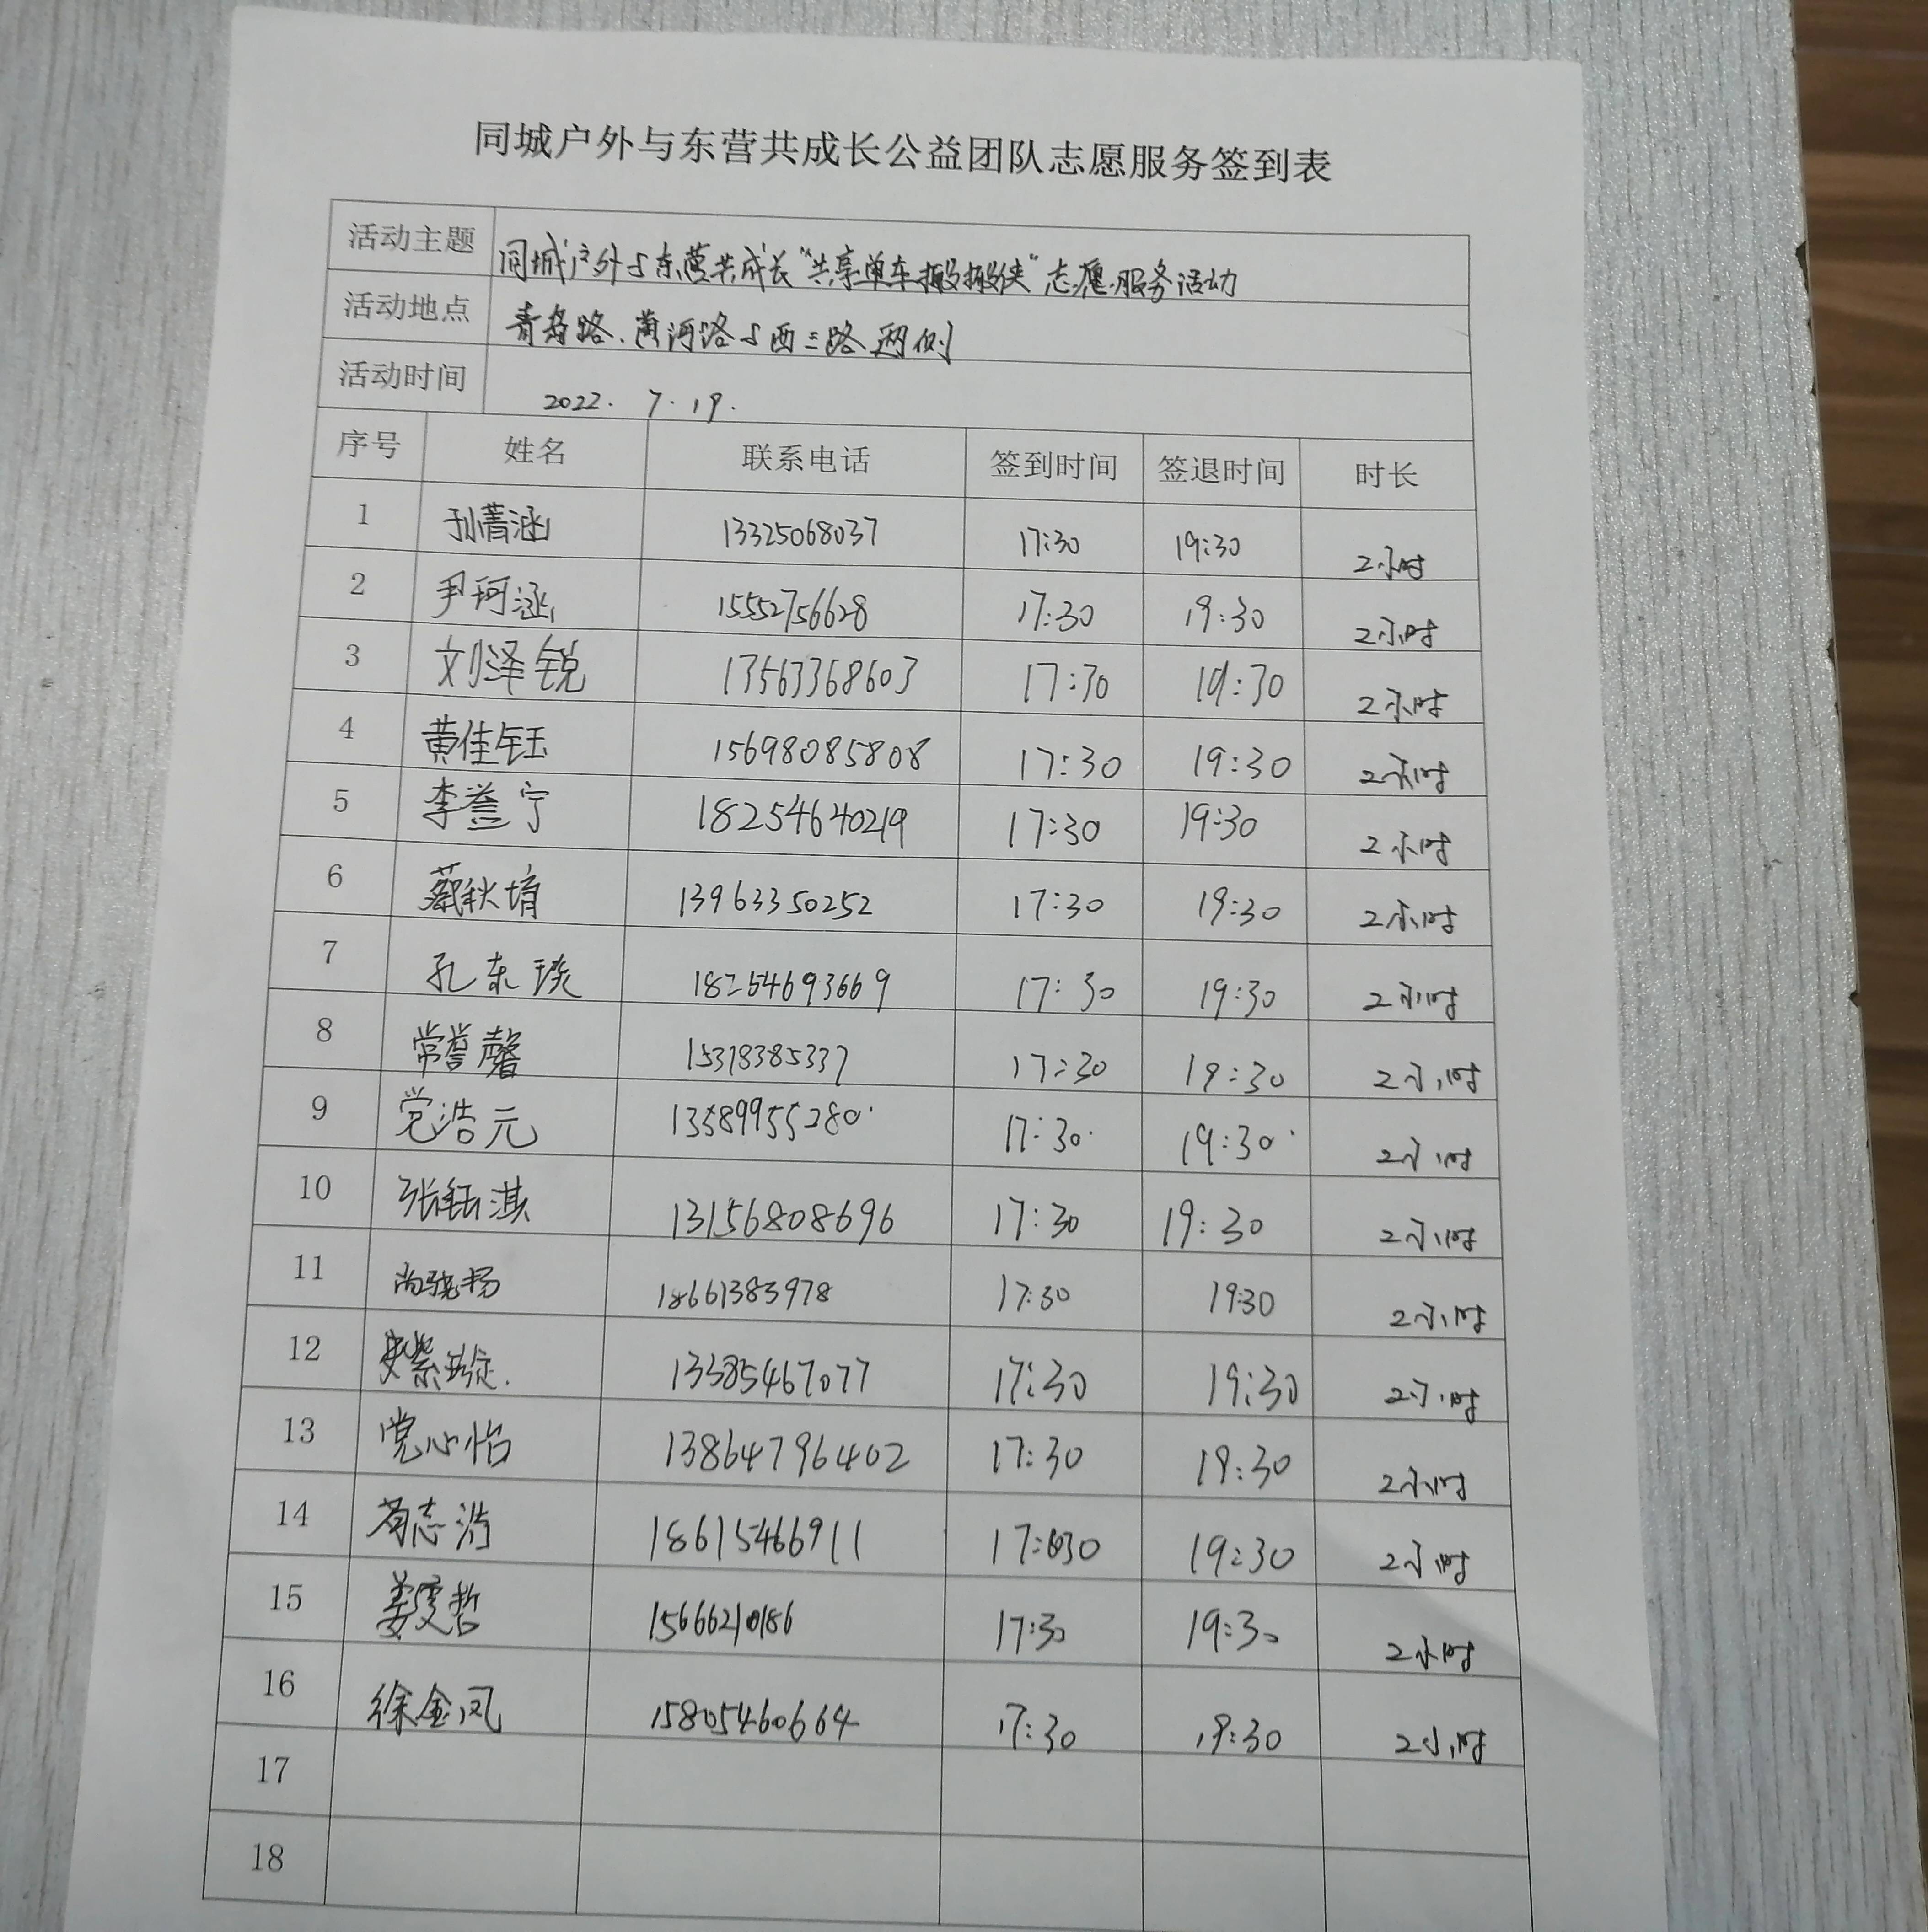 同城户外与东营共成长公益团队志愿服务签到表
活动主题 同城户外与东营共成长“共享单车搬搬侠”志愿服务活动
活动地点 青岛路、黄河路与西三路两侧
活动时间 2022. 7.19.
序号 姓名 联系电话 签到时间 签退时间 时长
1 孙菁涵 13325068037 17:30 19:30 2小时
2 尹珂涵 15552756628 17:30 19:30 2小时
3 刘泽锐 13563368603 17:30 19:30 2小时
4 黄佳钰 15698085808 17:30 19:30 2小时
5 李誉宁 18254640219 17:30 19:30 2小时
6 蔡秋堉 13963350252 17:30 19:30 2小时
7 孔东琰 18254693669 17:30 19:30 2小时
8 常誉馨 15378385337 17:30 19:30 2小时
9 党浩元 13589955280 17:30 19:30 2小时
10 张钰淇 13156808696 17:30 19:30 2小时
11 尚骁扬 18661383978 17:30 19:30 2小时
12 紫璇 13385467077 17:30 19:30 2小时
13 党心怡 13864796402 17:30 19:30 2小时
14 志浩 18615466911 17:30 19:30 2小时
15 姜雯哲 15666210186 17:30 19:30 2小时
16 徐金凤 15805460664 17:30 19:30 2小时
17
18